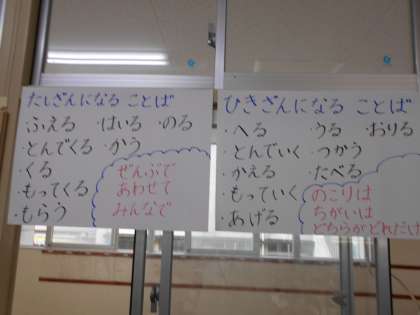 たしざんになる ことば
ふえる ・はいる ・のる
・とんでくる ・かう
・くる
・もってくる
・もらう
ぜんぶで
あわせて
みんなで
ひきざんになる ことば
・へる ・うる ・おりる
・とんでいく ・つかう
・かえる ・たべる
・もっていく
・あげる
のこりは
ちがいは
どちらがどれだけ